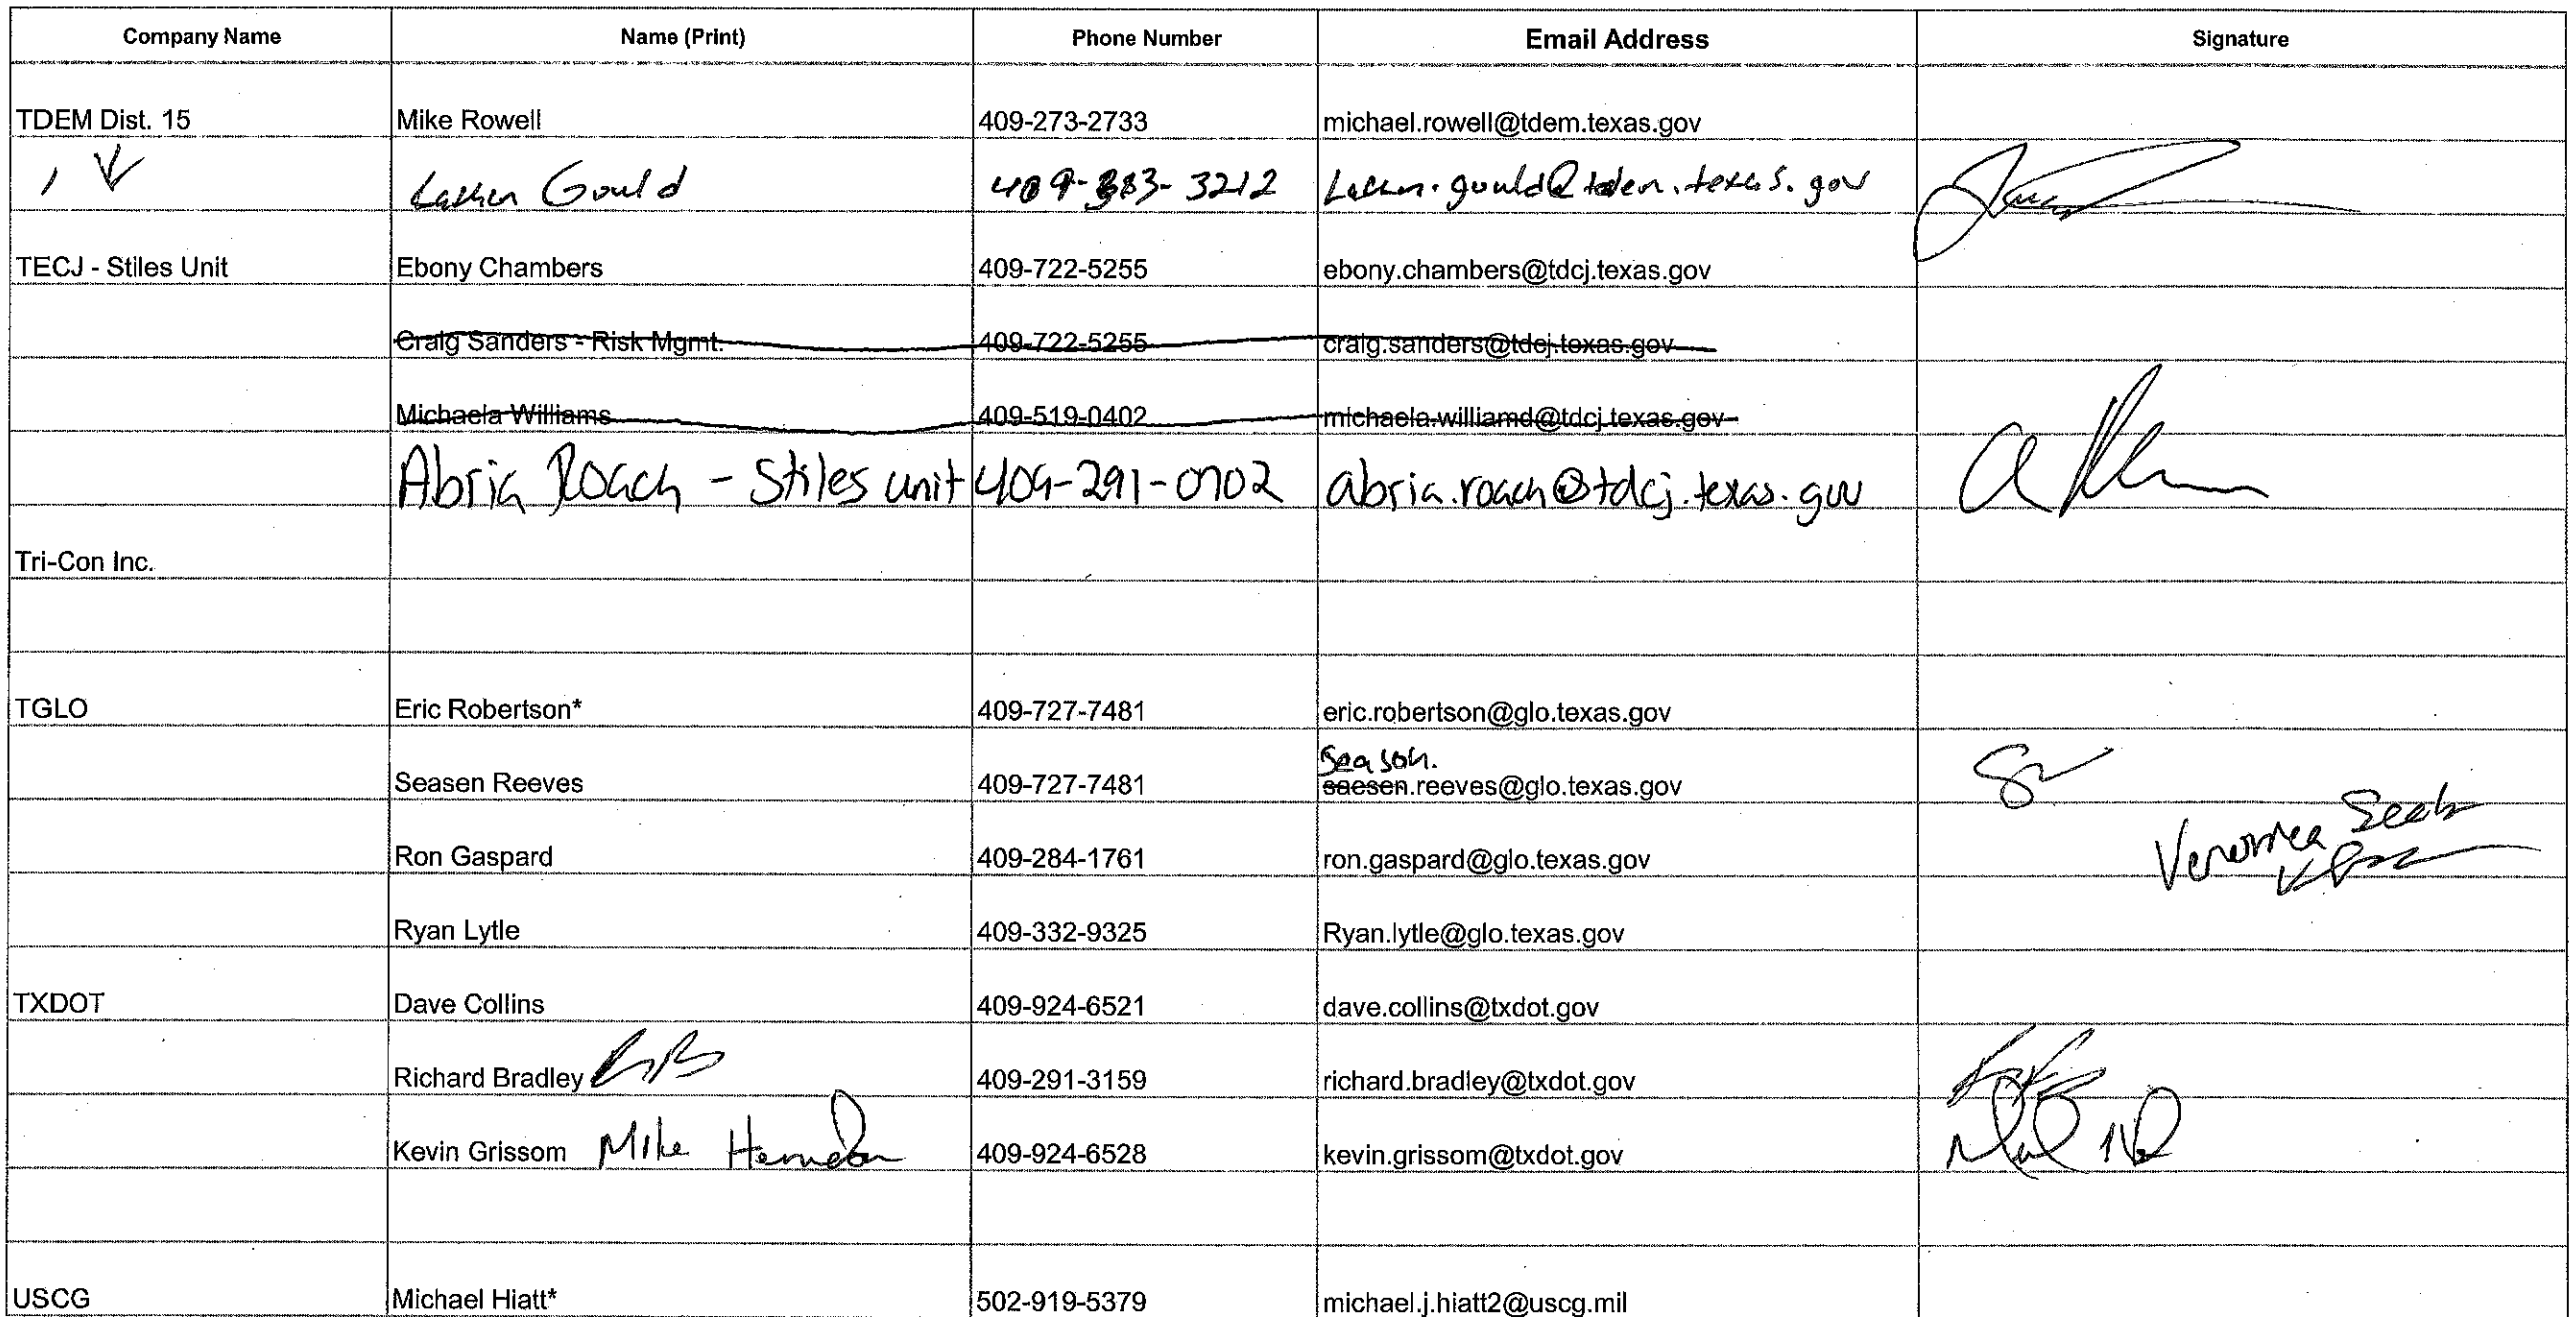 Company Name Name (Print) Phone Number Email Address Signature
TDEM Dist. 15 Mike Rowell 409-273-2733 michael.rowell@tdem.texas.gov
Gould 3212 gould@tdem.texas.gov
TECJ - Stiles Unit Ebony Chambers 409-722-5255 ebony.chambers@tdcj.texas.gov
Craig Sanders - Risk Mgmt. 409-722-5255 craig.sanders@tdcj.texas.gov
Michaela Williams 409-519-0402 michaela.williamd@tdcj.texas.gov
Abria Roach - Stiles unit 409-291-0702 abria.roach@tdcj.texas.gov
Tri-Con Inc.
TGLO Eric Robertson* 409-727-7481 eric.robertson@glo.texas.gov
season.
Seasen Reeves 409-727-7481 saesen.reeves@glo.texas.gov
Ron Gaspard 409-284-1761 ron.gaspard@glo.texas.gov Veronica
Ryan Lytle 409-332-9325 Ryan.lytle@glo.texas.gov
TXDOT Dave Collins 409-924-6521 dave.collins@txdot.gov
Richard Bradley RB 409-291-3159 richard.bradley@txdot.gov
Kevin Grissom Mike Herndon 409-924-6528 kevin.grissom@txdot.gov
USCG Michael Hiatt* 502-919-5379 michael.j.hiatt2@uscg.mil